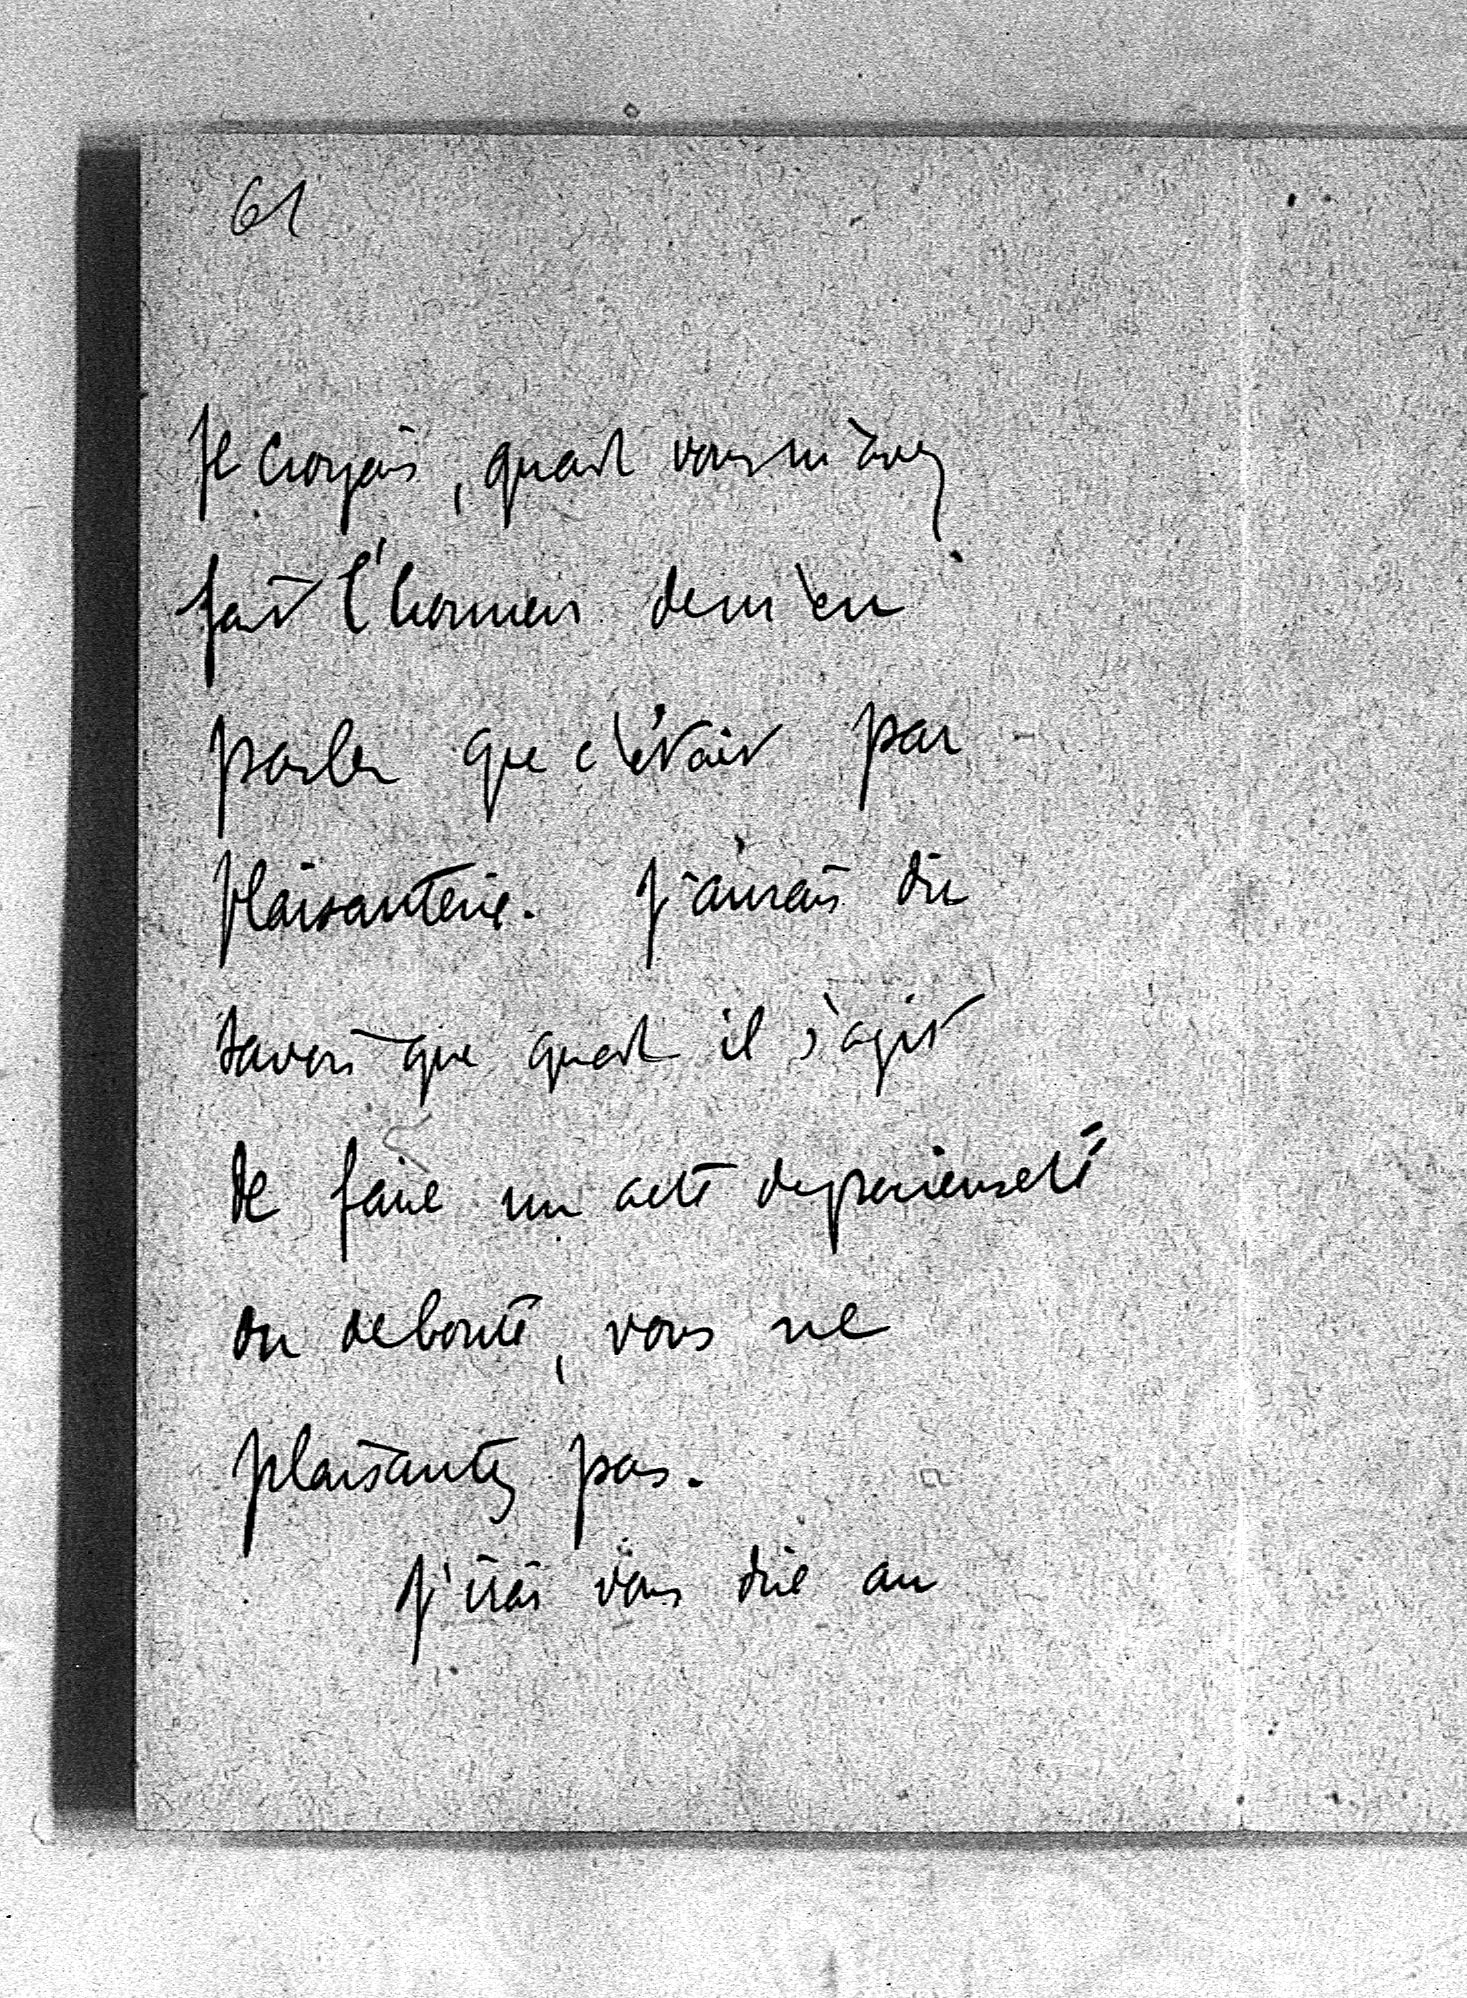 61
Je croyais, quand vous m'avez
fait l'honneur de m'en
parler que c'était par
plaisanterie. J'aurais du
savoir que quand il s'agit
de faire un acte de
ou de bonté, vous ne
plaisantez pas.
J'irai vous dire au